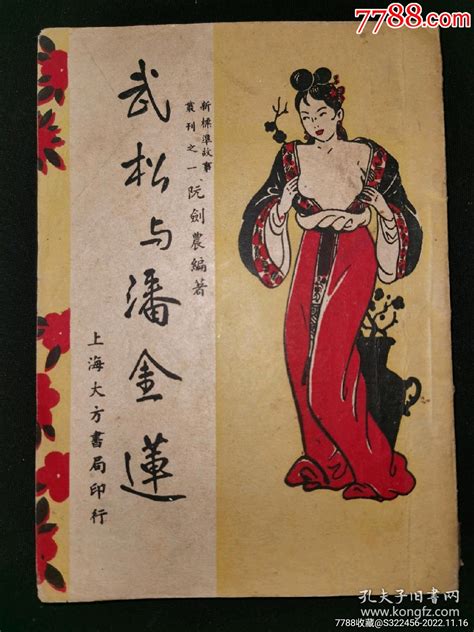 7788.com
武松与潘金蓮
新標準故事
叢刊之一
阮劍農編著
上海大方書局印行
孔夫子旧书网
www.kongfz.com
7788收藏@S322456-2022.11.16